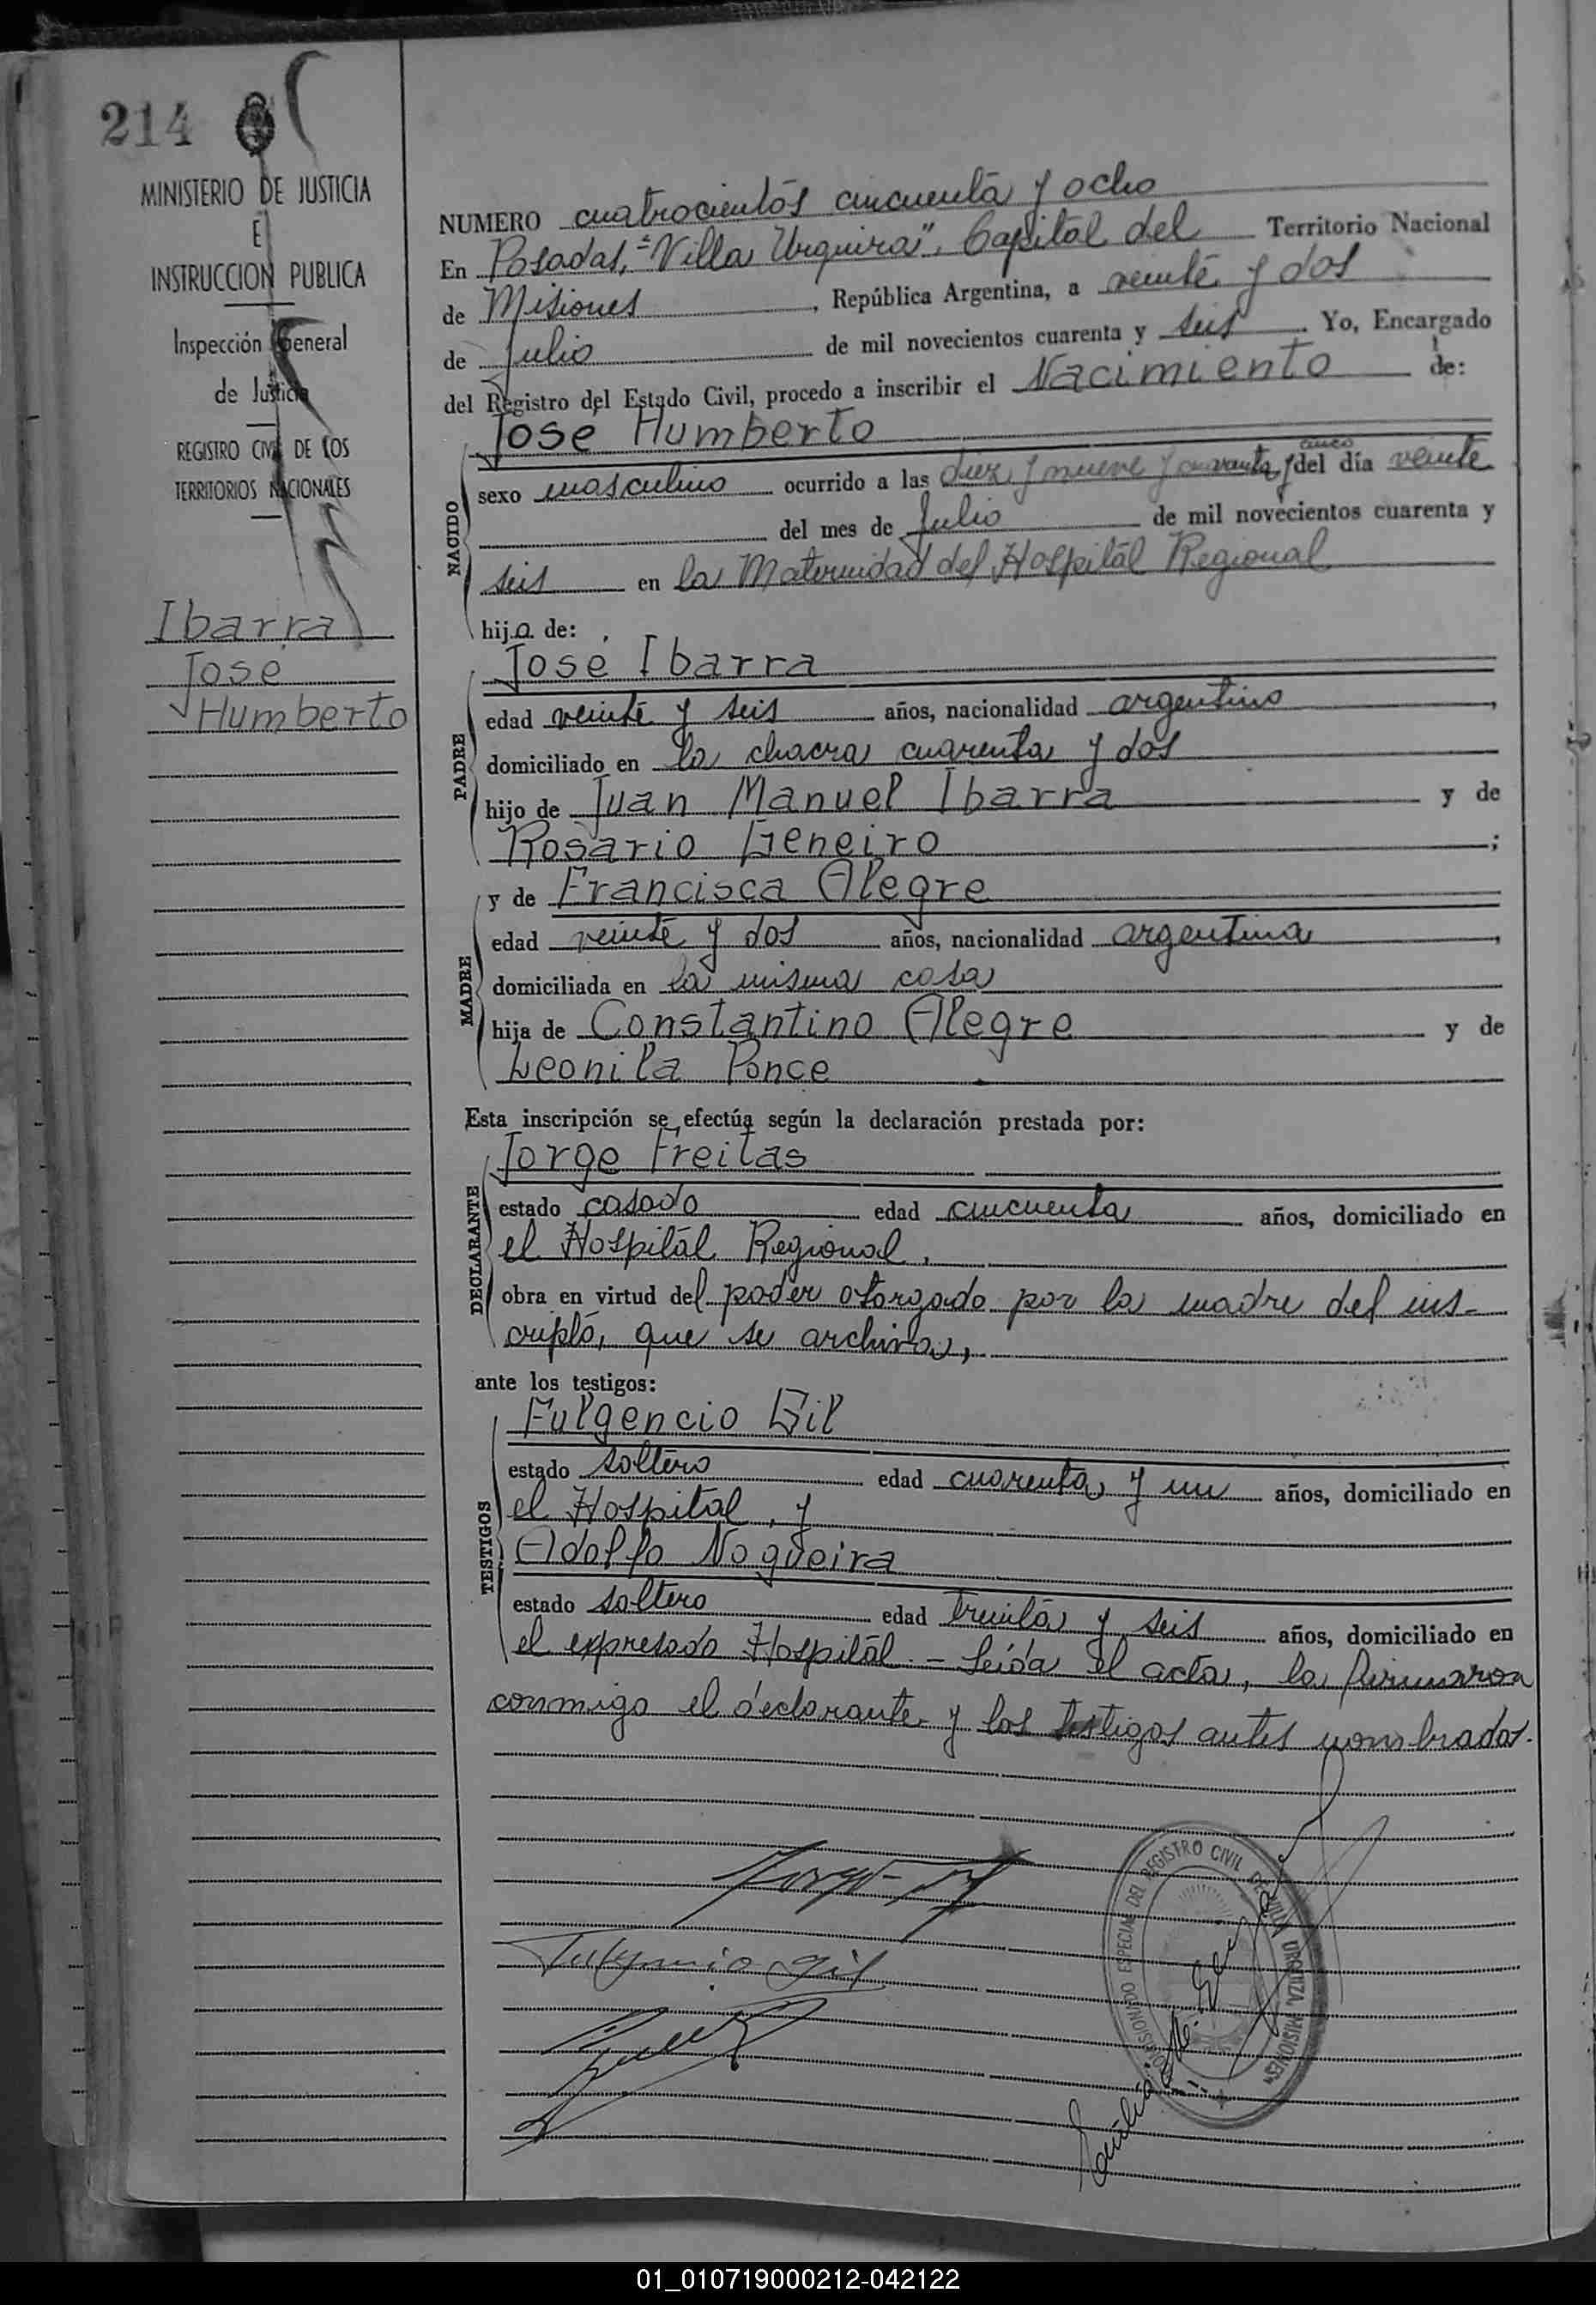 214
MINISTERIO DE JUSTICIA
E
INSTRUCCION PUBLICA
Inspección General
de Justicia
REGISTRO CIVIL DE LOS
TERRITORIOS NACIONALES
Ibarra
José
Humberto
NUMERO cuatrocientos cincuenta y ocho
En Posadas, "Villa Urquiza", Capital del Territorio Nacional
de Misiones, República Argentina, a veinte y dos
de Julio de mil novecientos cuarenta y seis. Yo, Encargado
del Registro del Estado Civil, procedo a inscribir el Nacimiento de:
José Humberto
NACIDO
sexo masculino ocurrido a las diez y nueve y cuarenta y cinco del día veinte
del mes de Julio de mil novecientos cuarenta y
seis en la Maternidad del Hospital Regional
hijo de:
José Ibarra
PADRE
edad veinte y seis años, nacionalidad argentino,
domiciliado en la chacra cuarenta y dos
hijo de Juan Manuel Ibarra y de
Rosario Geneiro;
y de Francisca Alegre
MADRE
edad veinte y dos años, nacionalidad argentina,
domiciliada en la misma casa
hija de Constantino Alegre y de
Leonila Ponce
Esta inscripción se efectúa según la declaración prestada por:
Jorge Freitas
DECLARANTE
estado casado edad cincuenta años, domiciliado en
el Hospital Regional,
obra en virtud del poder otorgado por la madre del ins-
cripto, que se archiva,
ante los testigos:
Fulgencio Gil
TESTIGOS
estado soltero edad cuarenta y un años, domiciliado en
el Hospital, y
Adolfo Nogueira
estado soltero edad treinta y seis años, domiciliado en
el expresado Hospital.- Leída el acta, la firmaron
conmigo el declarante y los testigos antes nombrados.
Fulgencio Gil
COMISIONADO ESPECIAL DEL REGISTRO CIVIL DE VILLA URQUIZA, MISIONES
01_010719000212-042122